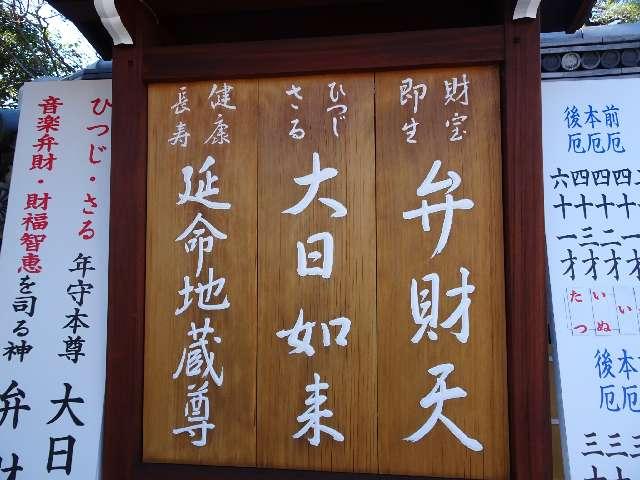 財宝
即生
弁財天
ひつじ
さる
大日如来
健康
長寿
延命地蔵尊
ひつじ・さる 年守本尊 大日
音楽弁財・財福智恵を司る神 弁財
前厄
本厄
後厄
四十一才
四十二才
四十三才
六十一才
いぬ
たつ
本厄
後厄